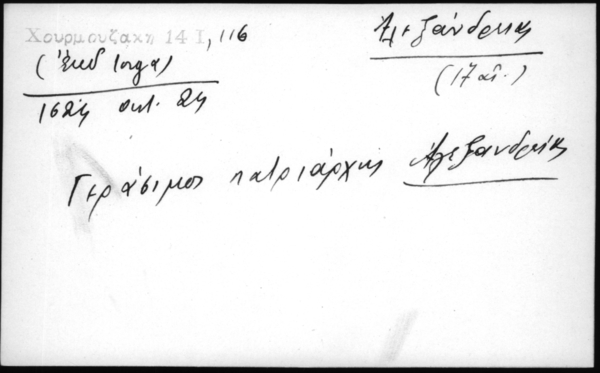 Χουρμουζάκη 14 I, 116
(ἔκδ Iorga)
1624 οκτ. 24
Ἀλεξάνδρεια
(17 αἰ.)
Γεράσιμος πατριάρχης Ἀλεξανδρείας